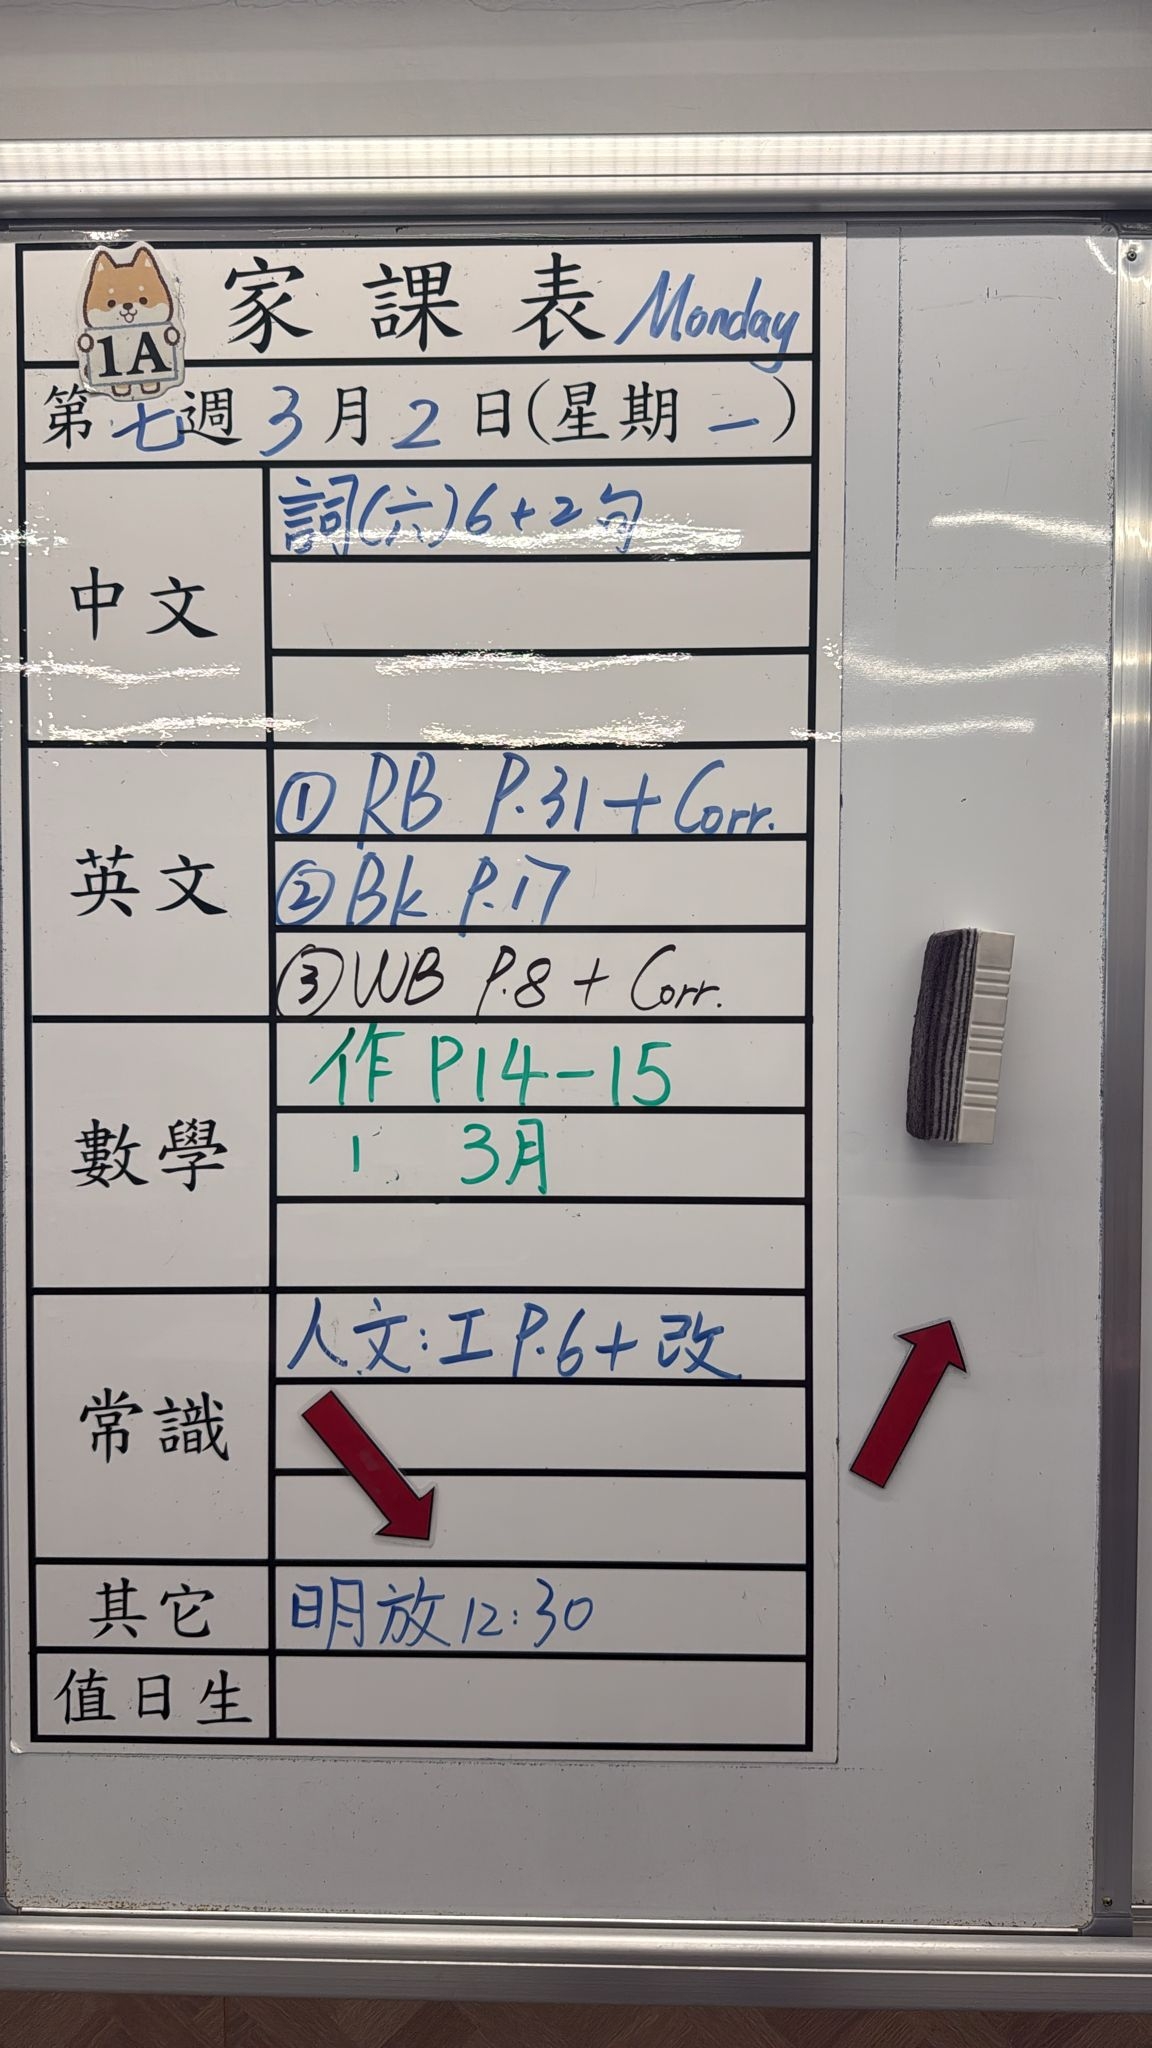 家課表 Monday
1A
第七週 3月2日(星期一)
中文
詞(六)6+2句
英文
① RB P.31 + Corr.
② Bk P.17
③ WB P.8 + Corr.
數學
作 P14-15
1 3月
常識
人文:工P.6+改
其它
明放12:30
值日生